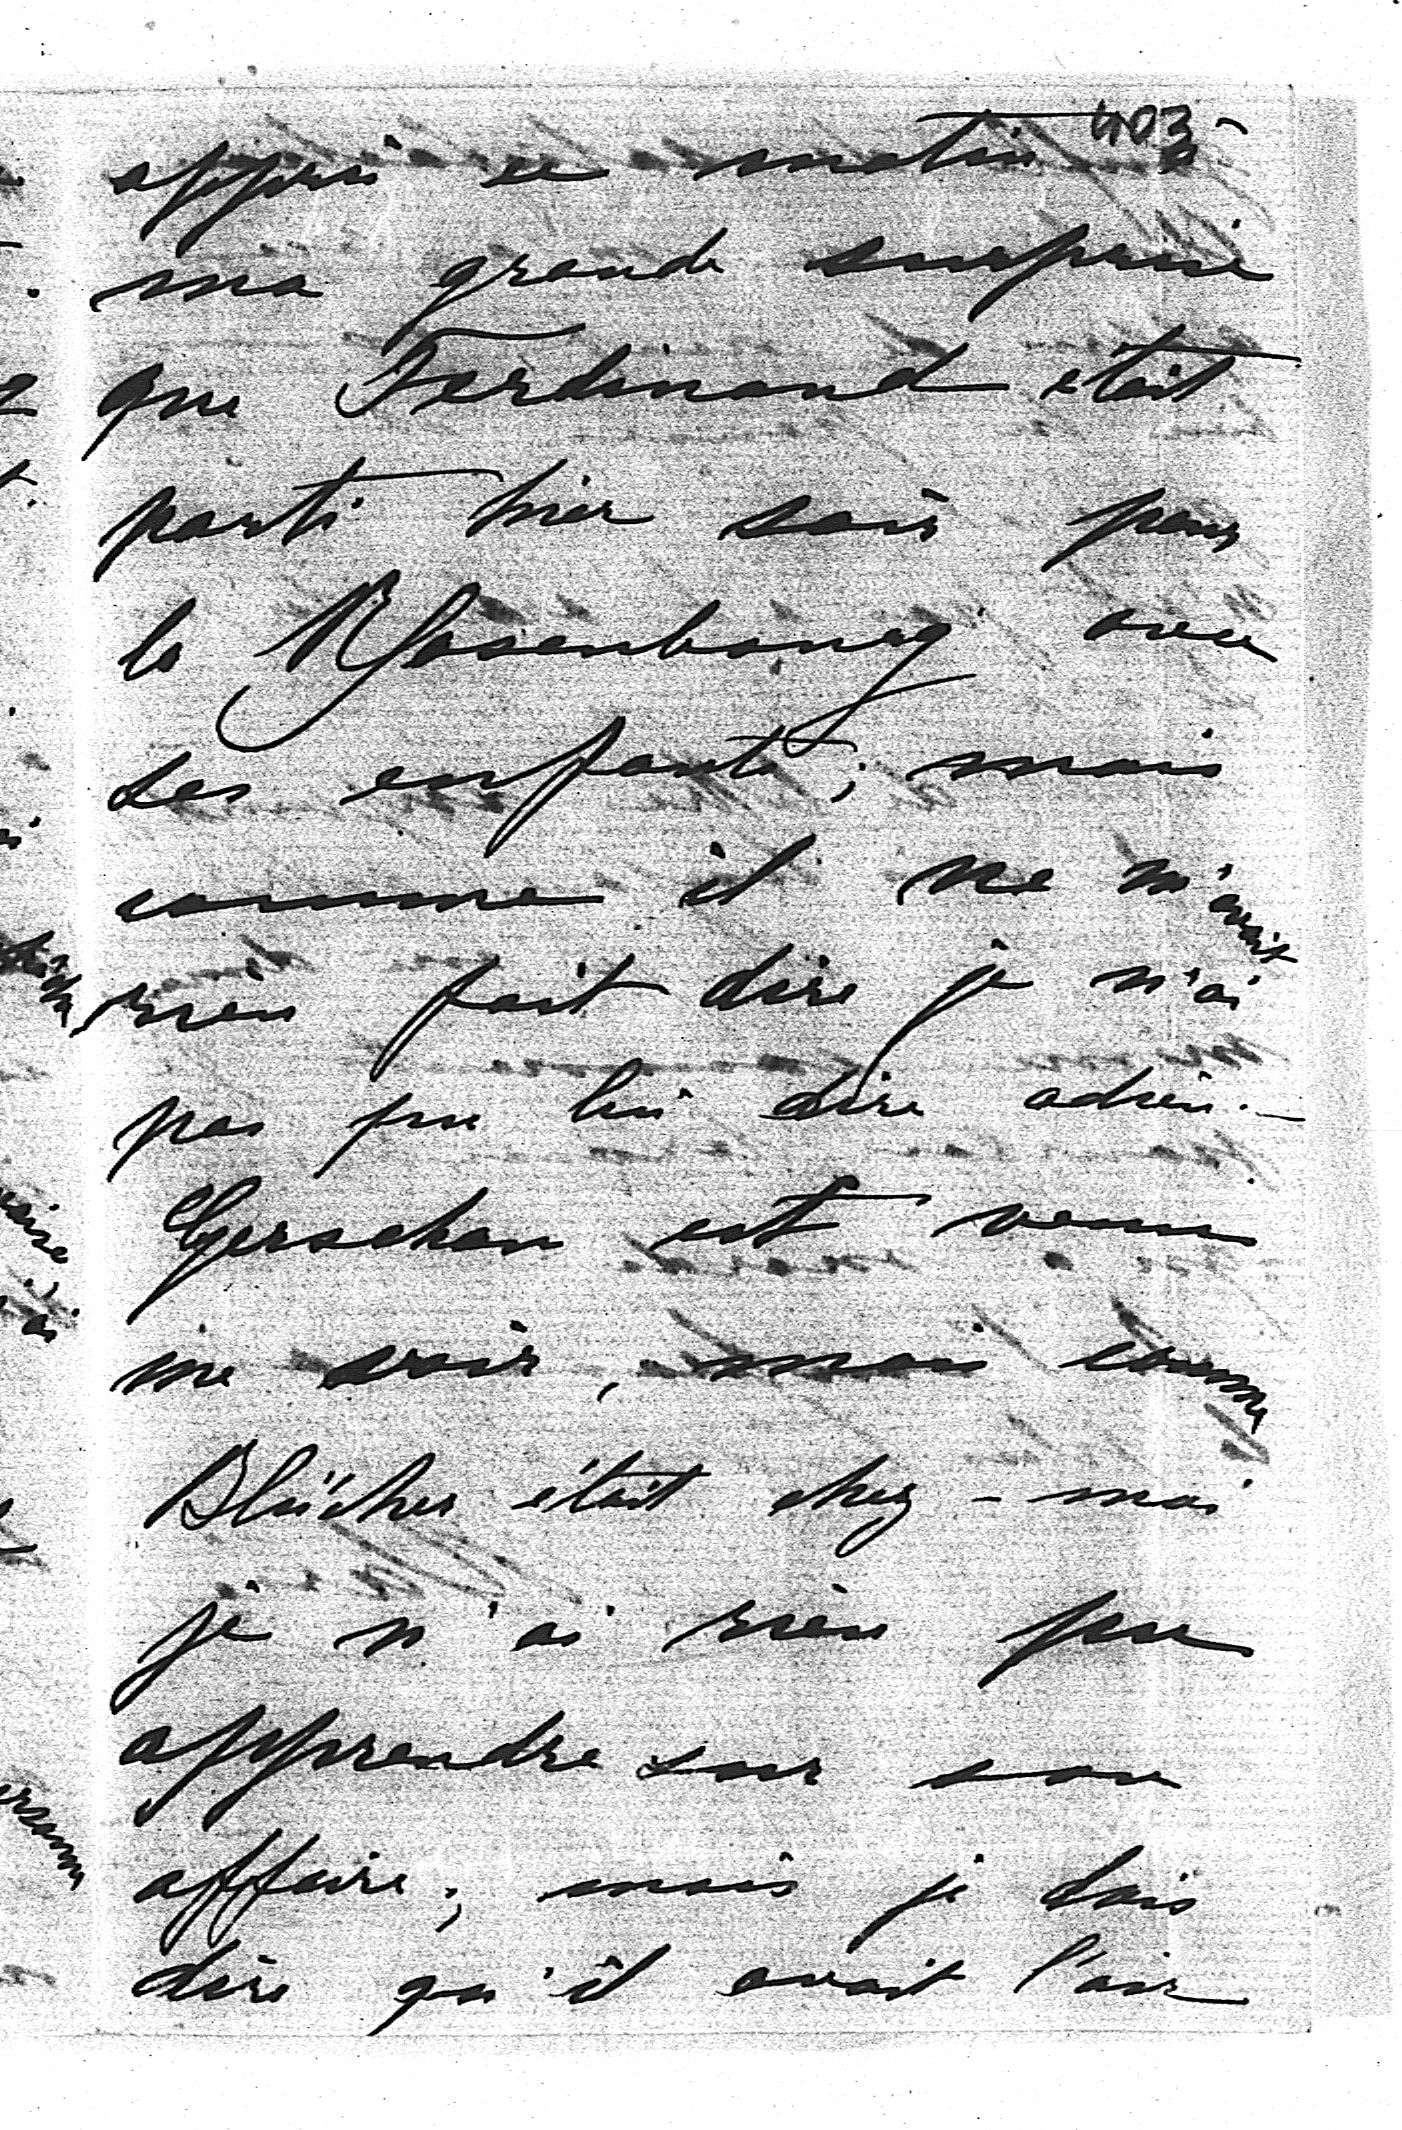 403
appris ce matin à
ma grande surprise
que Ferdinand était
parti hier soir pour
le Rosenbourg avec
ses enfants; mais
comme il ne m'avait
rien fait dire je n'ai
pas pu lui dire adieu.—
est venu
me voir, mais comme
Blücher était chez-moi
je n'ai rien pu
apprendre sur son
affaire; mais je dois
dire qu'il avait l'air